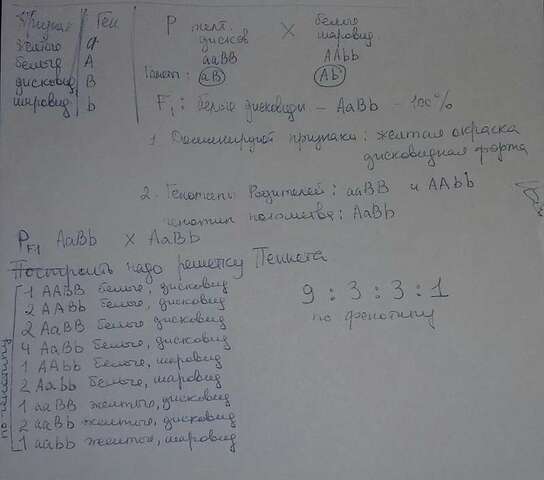 Признак Ген
желтые a
белые A
дисковид B
шаровид b
P желт. дисков X белые шаровид.
aaBB AAbb
Гаметы: aB Ab
F1: белые дисковидн – AaBb – 100%
1. Доминируют признаки: желтая окраска
дисковидная форма
2. Генотипы Родителей: aaBB и AAbb
генотип потомства: AaBb
PF1 AaBb X AaBb
Построить надо решетку Пеннета
по генотипу
1 AABB белые, дисковид
2 AABb белые, дисковид
2 AaBB белые, дисковид
4 AaBb белые, дисковид
1 AAbb белые, шаровид
2 Aabb белые, шаровид
1 aaBB желтые, дисковид
2 aaBb желтые, дисковид
1 aabb желтые, шаровид
9 : 3 : 3 : 1
по фенотипу